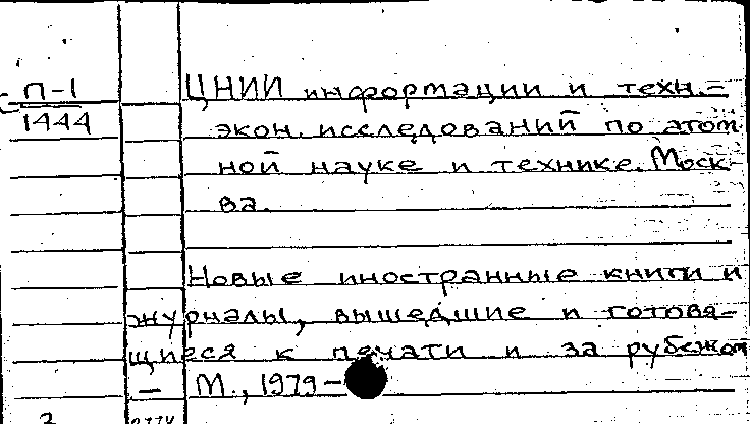 П-1
1444
ЦНИИ информации и техн.=
экон. исследований по атом
ной науке и технике. Моск-
ва.
Новые иностранные книги и
журналы, вышедшие и готовя-
щиеся к печати и за рубежом
— М., 1979—